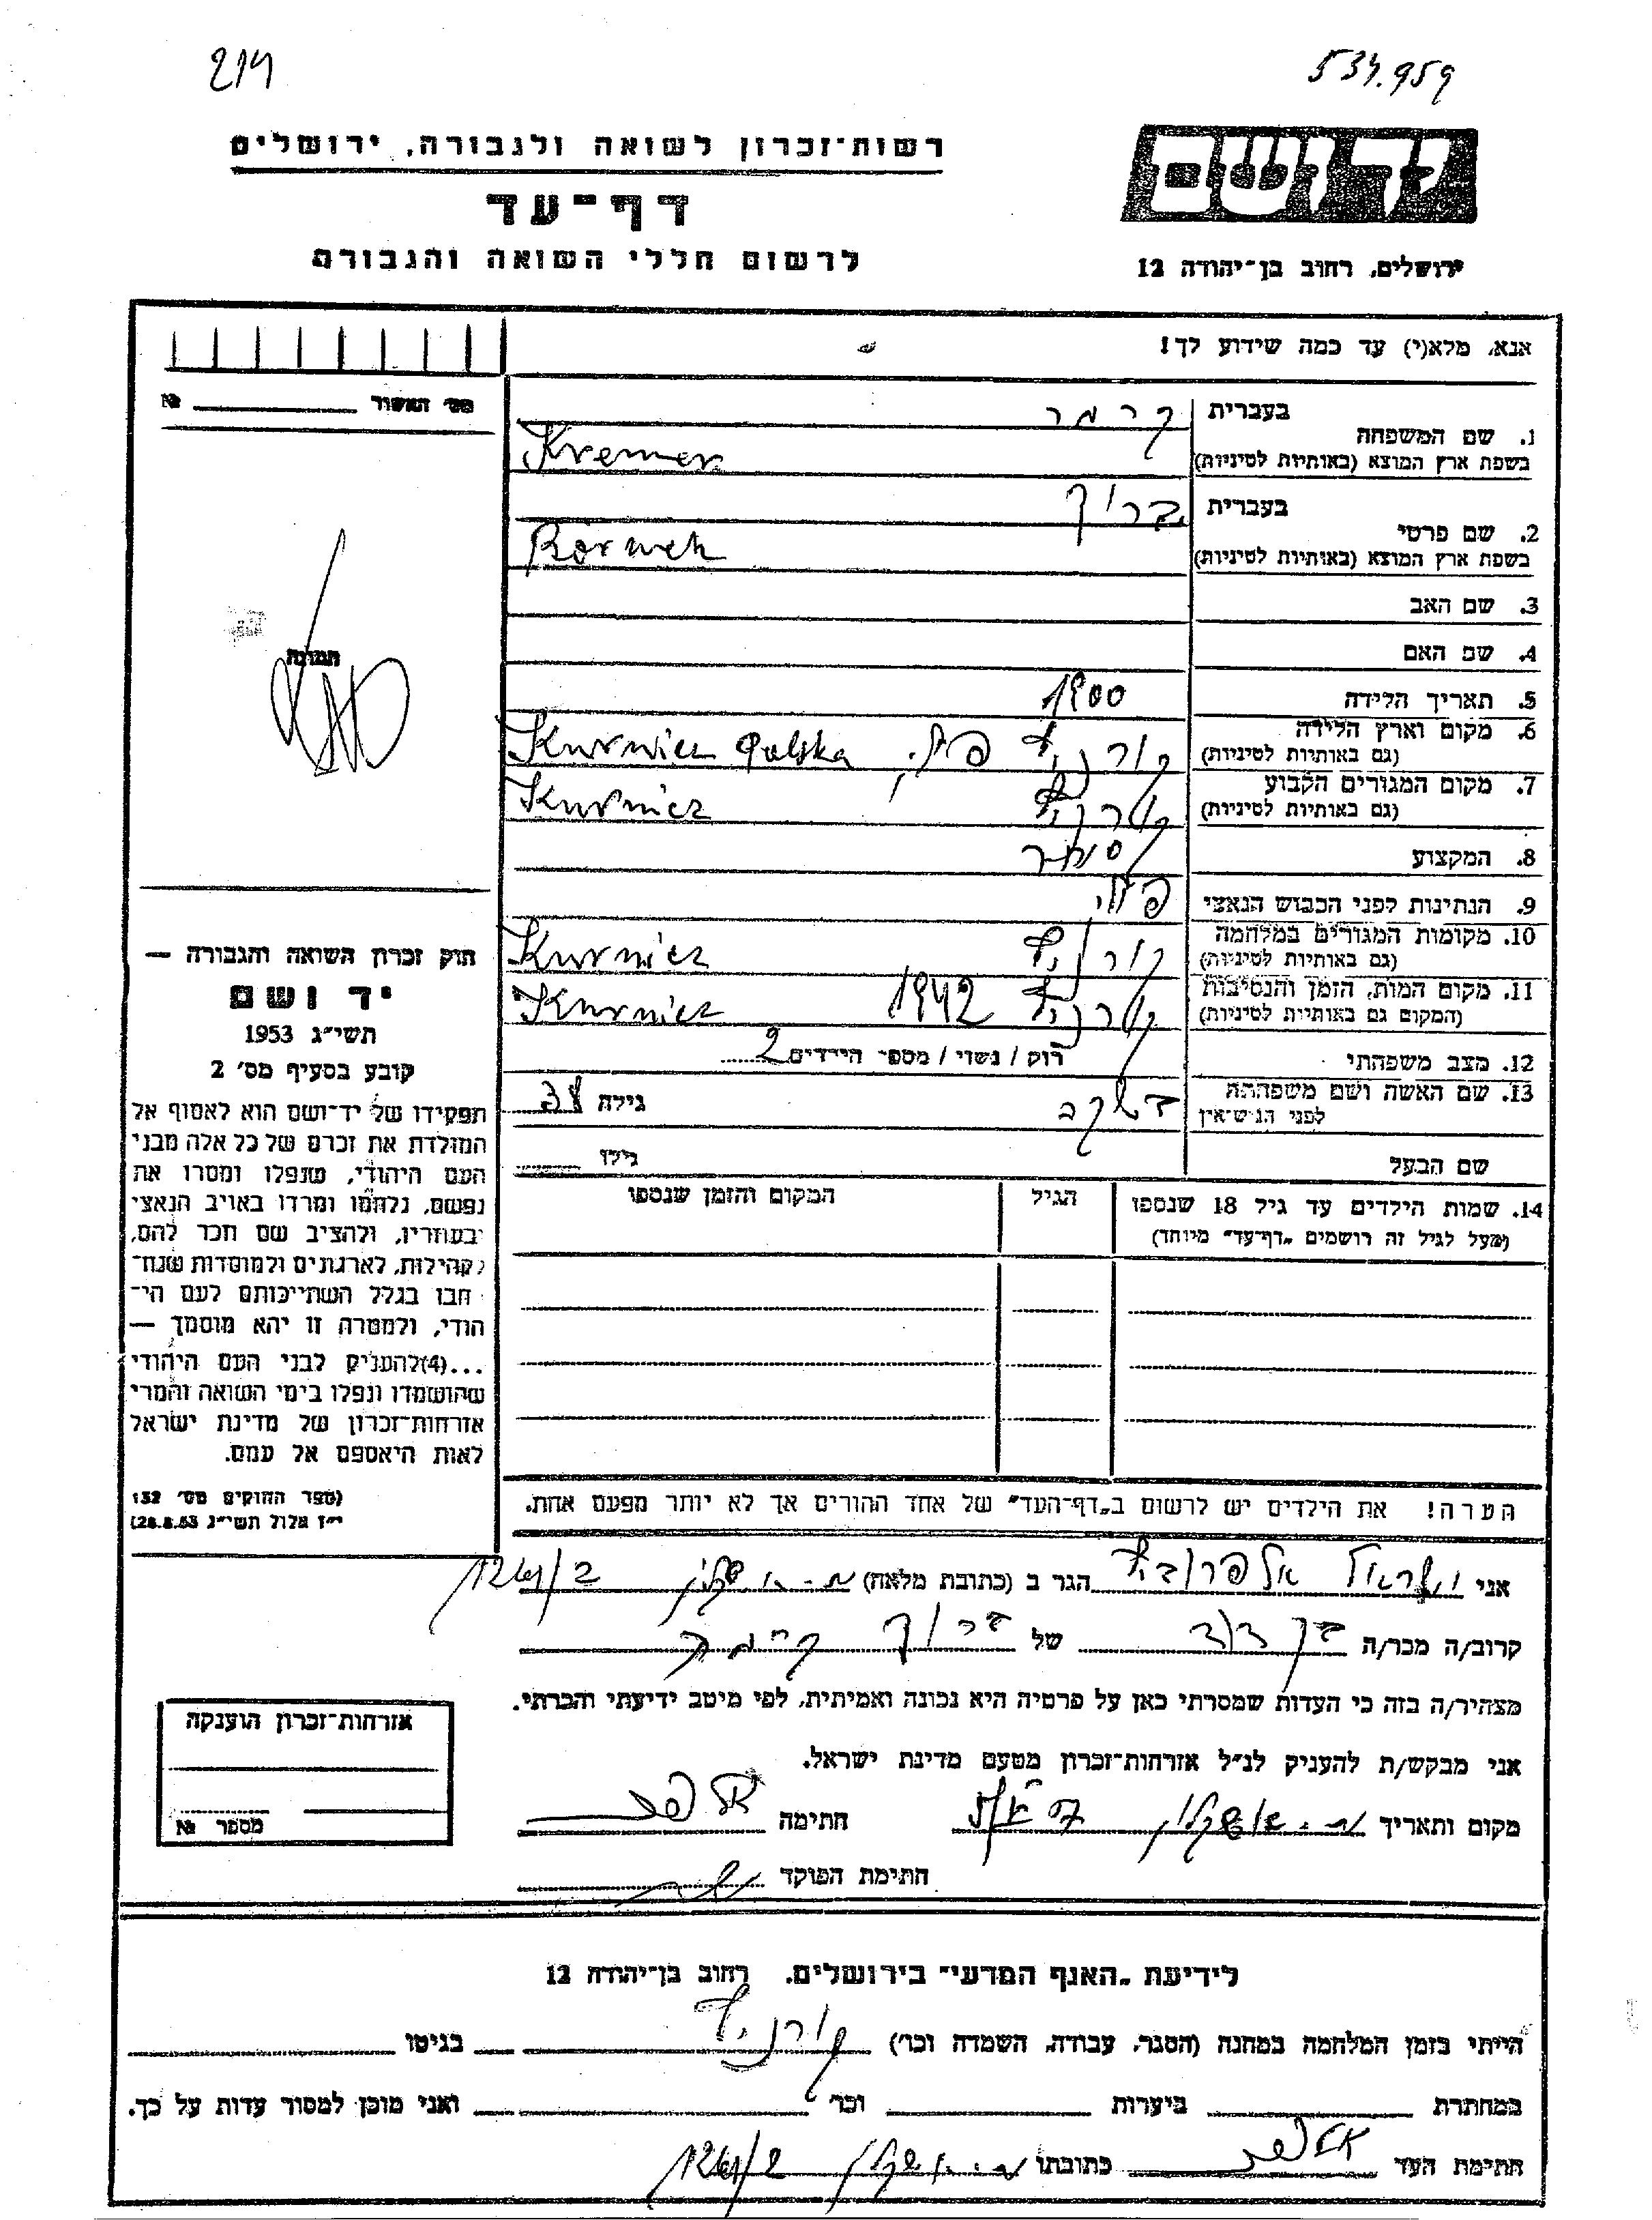 214
534.959
רשות-זכרון לשואה ולגבורה, ירושלים
דף-עד
לרשום חללי השואה והגבורה
יד ושם
ירושלים, רחוב בן-יהודה 12
אנא, מלא(י) עד כמה שידוע לך!
מס' האשור № 
1. שם המשפחה בעברית קרמר
בשפת ארץ המוצא (באותיות לטיניות) Kremer
2. שם פרטי בעברית ברוך
בשפת ארץ המוצא (באותיות לטיניות)
3. שם האב
4. שם האם
5. תאריך הלידה 1900
6. מקום וארץ הלידה
(גם באותיות לטיניות) קורניץ פולין Kurnicz Polska
7. מקום המגורים הקבוע
(גם באותיות לטיניות) קורניץ Kurnicz
8. המקצוע סוחר
9. הנתינות לפני הכבוש הנאצי פולני
10. מקומות המגורים במלחמה
(גם באותיות לטיניות) קורניץ Kurnicz
11. מקום המות, הזמן והנסיבות
(המקום גם באותיות לטיניות) קורניץ 1942 Kurnicz
12. מצב משפחתי רוק / נשוי / מספר הילדים 2
13. שם האשה ושם משפחתה
לפני הנישואין גילה 38
שם הבעל גילו
14. שמות הילדים עד גיל 18 שנספו
(מעל לגיל זה רושמים "דף-עד" מיוחד)
הגיל
המקום והזמן שנספו
תמונה
חוק זכרון השואה והגבורה —
יד ושם
תשי"ג 1953
קובע בסעיף מס' 2
תפקידו של יד-ושם הוא לאסוף אל
המולדת את זכרם של כל אלה מבני
העם היהודי, שנפלו ומסרו את
נפשם, נלחמו ומרדו באויב הנאצי
ובעוזריו, ולהציב שם וזכר להם,
לקהילות, לארגונים ולמוסדות שנח-
רבו בגלל השתייכותם לעם הי-
הודי, ולמטרה זו יהא מוסמך —
...(4) להעניק לבני העם היהודי
שהושמדו ונפלו בימי השואה והמרי
אזרחות-זכרון של מדינת ישראל
לאות היאספם אל עמם.
(ספר החוקים מס' 132
י"ז אלול תשי"ג 28.8.53)
הערה! את הילדים יש לרשום ב"דף-העד" של אחד ההורים אך לא יותר מפעם אחת.
אני ישראל אלפרוביץ הגר ב (כתובת מלאה) מ. אשקלון ב/126
קרוב/ה מכר/ה בן דוד של ברוך קרמר
מצהיר/ה בזה כי העדות שמסרתי כאן על פרטיה היא נכונה ואמיתית, לפי מיטב ידיעתי והכרתי.
אני מבקש/ת להעניק לנ"ל אזרחות-זכרון מטעם מדינת ישראל.
מקום ותאריך מ. אשקלון חתימה
חתימת הפוקד
אזרחות-זכרון הוענקה
מספר №
לידיעת "האגף המדעי" בירושלים, רחוב בן-יהודה 12
הייתי בזמן המלחמה במחנה (הסגר, עבודה, השמדה וכו') קורניץ בגיטו
במחתרת ביערות וכו' ואני מוכן למסור עדות על כך.
חתימת העד כתובתו מ. אשקלון